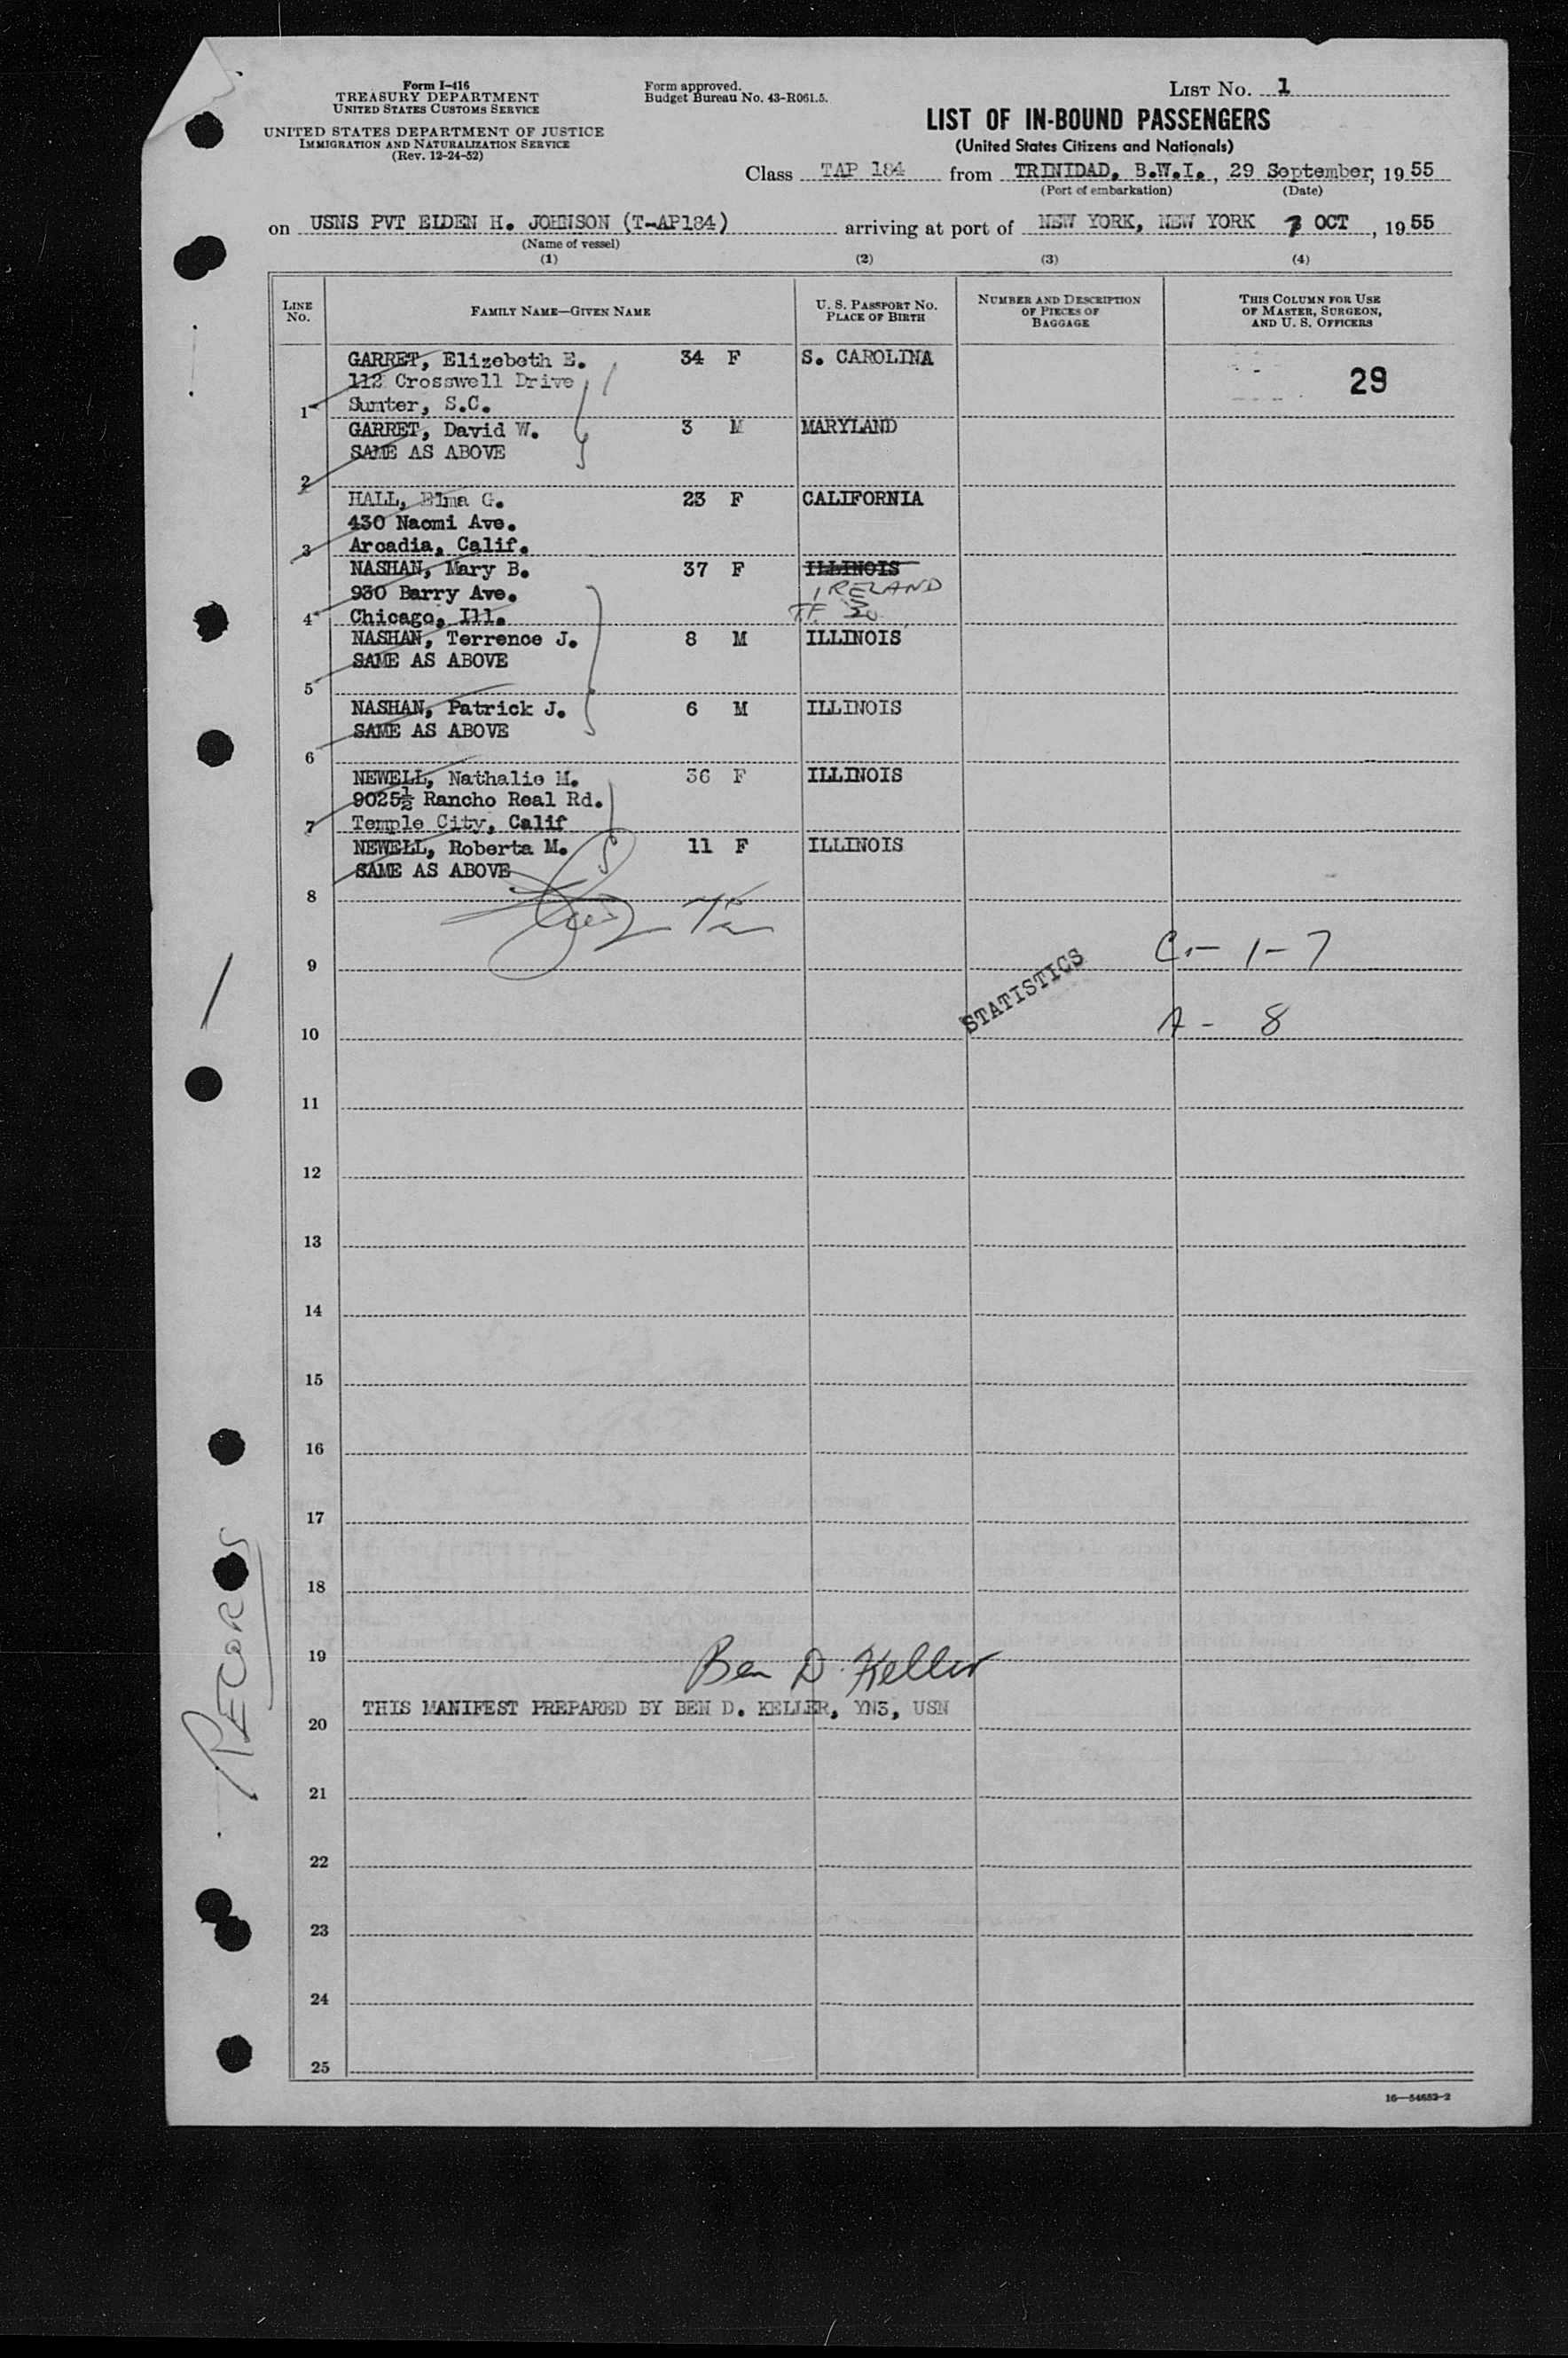 Form I-416
TREASURY DEPARTMENT
UNITED STATES CUSTOMS SERVICE
UNITED STATES DEPARTMENT OF JUSTICE
IMMIGRATION AND NATURALIZATION SERVICE
(Rev. 12-24-52)
Form approved.
Budget Bureau No. 43-R061.5.
LIST No. 1
LIST OF IN-BOUND PASSENGERS
(United States Citizens and Nationals)
Class TAP 184 from TRINIDAD, B.W.I., 29 September, 1955
(Port of embarkation) (Date)
on USNS PVT ELDEN H. JOHNSON (T-AP184) arriving at port of NEW YORK, NEW YORK 7 OCT, 1955
(Name of vessel)
(1) (2) (3) (4)
LINE No. FAMILY NAME—GIVEN NAME U. S. PASSPORT No. PLACE OF BIRTH NUMBER AND DESCRIPTION OF PIECES OF BAGGAGE THIS COLUMN FOR USE OF MASTER, SURGEON, AND U. S. OFFICERS
GARRET, Elizebeth E. 34 F S. CAROLINA
112 Crosswell Drive 29
1 Sumter, S.C.
GARRET, David W. 3 M MARYLAND
SAME AS ABOVE
2
HALL, Elma G. 23 F CALIFORNIA
430 Naomi Ave.
3 Arcadia, Calif.
NASHAN, Mary B. 37 F ILLINOIS
930 Barry Ave. IRELAND
4 Chicago, Ill.
NASHAN, Terrence J. 8 M ILLINOIS
SAME AS ABOVE
5
NASHAN, Patrick J. 6 M ILLINOIS
SAME AS ABOVE
6
NEWELL, Nathalie M. 36 F ILLINOIS
9025½ Rancho Real Rd.
7 Temple City, Calif
NEWELL, Roberta M. 11 F ILLINOIS
SAME AS ABOVE
8
9 C-1-7
STATISTICS
10 A - 8
11
12
13
14
15
16
17
18
19 Ben D. Keller
THIS MANIFEST PREPARED BY BEN D. KELLER, YN3, USN
20
21
22
23
24
25
RECORDS
16—54652-2